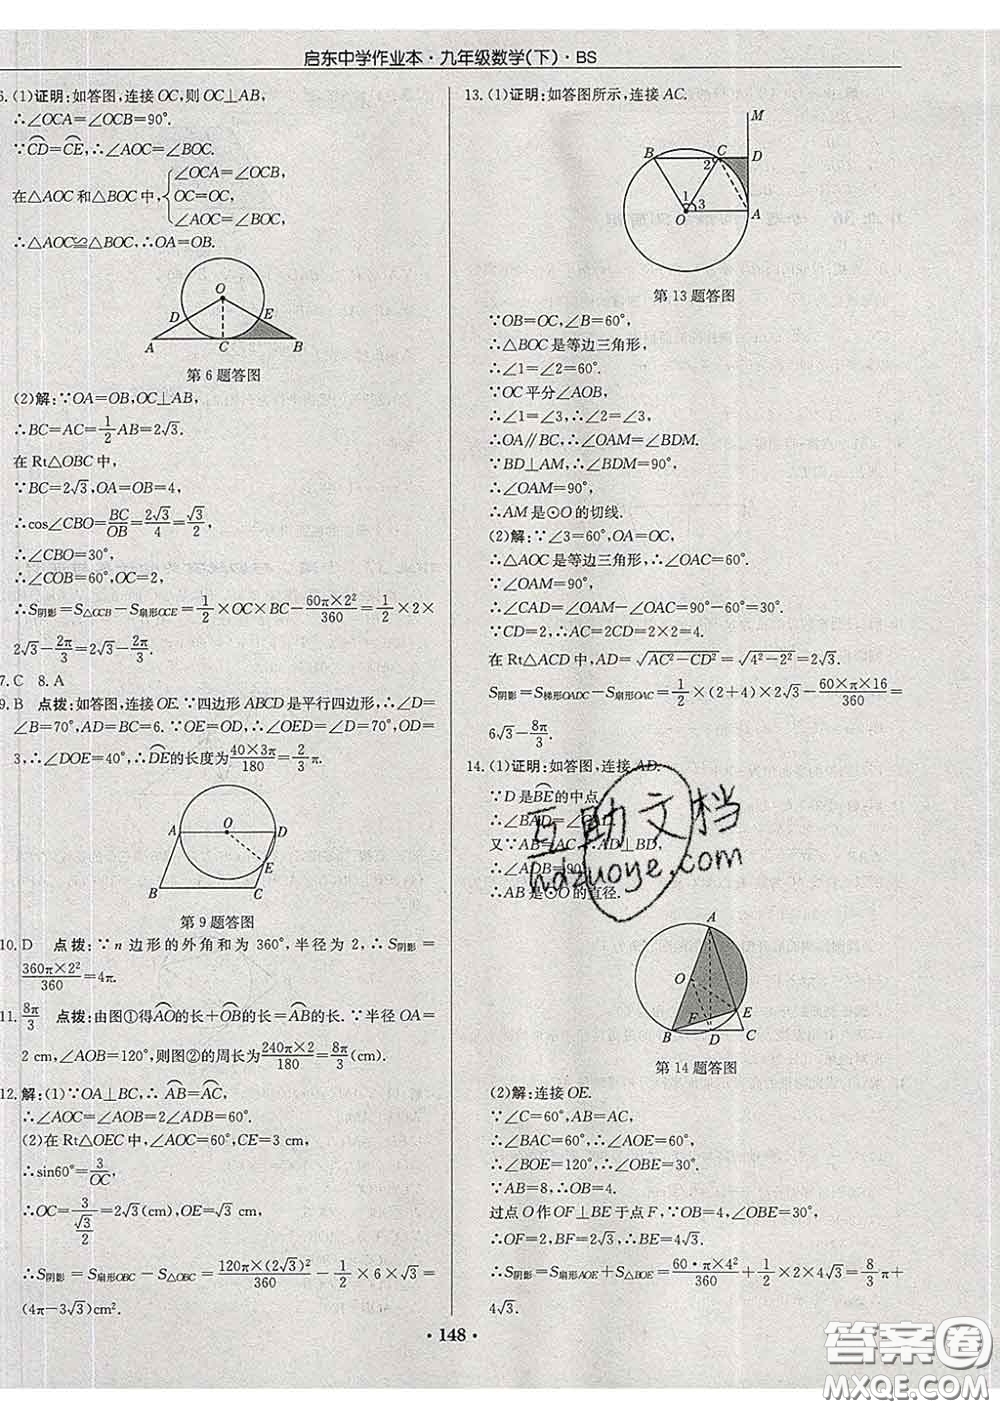 启东中学作业本·九年级数学(下)·BS
6.(1)证明:如答图,连接OC,则OC⊥AB,
∴∠OCA=∠OCB=90°.
∵CD⌒=CE⌒,∴∠AOC=∠BOC.
在△AOC和△BOC中,{∠OCA=∠OCB,
OC=OC,
∠AOC=∠BOC,
∴△AOC≌△BOC,∴OA=OB.
O
D E
A C B
第6题答图
(2)解:∵OA=OB,OC⊥AB,
∴BC=AC=1/2AB=2√3.
在Rt△OBC中,
∵BC=2√3,OA=OB=4,
∴cos∠CBO=BC/OB=2√3/4=√3/2,
∴∠CBO=30°,
∴∠COB=60°,OC=2,
∴S阴影=S△OCB-S扇形OCE=1/2×OC×BC-60π×2²/360=1/2×2×
2√3-2π/3=2√3-2π/3.
7.C 8.A
9.B 点拨:如答图,连接OE.∵四边形ABCD是平行四边形,∴∠D=
∠B=70°,AD=BC=6.∵OE=OD,∴∠OED=∠D=70°,OD=
3,∴∠DOE=40°,∴DE⌒的长度为40×3π/180=2/3π.
A O D
E
B C
第9题答图
10.D 点拨:∵n边形的外角和为360°,半径为2,∴S阴影=
360π×2²/360=4π.
11.8π/3 点拨:由图①得AO⌒的长+OB⌒的长=AB⌒的长.∵半径OA=
2 cm,∠AOB=120°,则图②的周长为240π×2/180=8π/3(cm).
12.解:(1)∵OA⊥BC,∴AB⌒=AC⌒,
∴∠AOC=∠AOB=2∠ADB=60°.
(2)在Rt△OEC中,∠AOC=60°,CE=3 cm,
∴sin60°=3/OC,
∴OC=3/(√3/2)=2√3(cm),∴OE=√3(cm),
∴S阴影=S扇形OBC-S△OBC=120π×(2√3)²/360-1/2×6×√3=
(4π-3√3)cm².
13.(1)证明:如答图所示,连接AC.
M
B C D
2
1
3
O A
第13题答图
∵OB=OC,∠B=60°,
∴△BOC是等边三角形,
∴∠1=∠2=60°.
∵OC平分∠AOB,
∴∠1=∠3,∴∠2=∠3,
∴OA∥BC,∴∠OAM=∠BDM.
∵BD⊥AM,∴∠BDM=90°,
∴∠OAM=90°,
∴AM是⊙O的切线.
(2)解:∵∠3=60°,OA=OC,
∴△AOC是等边三角形,∴∠OAC=60°.
∵∠OAM=90°,
∴∠CAD=∠OAM-∠OAC=90°-60°=30°.
∵CD=2,∴AC=2CD=2×2=4.
在Rt△ACD中,AD=√(AC²-CD²)=√(4²-2²)=2√3.
S阴影=S梯形OADC-S扇形OAC=1/2×(2+4)×2√3-60×π×16/360=
6√3-8π/3.
14.(1)证明:如答图,连接AD.
∵D是BE⌒的中点,
∴∠BAD=∠CAD.
又∵AB=AC,∴AD⊥BD,
∴∠ADB=90°,
∴AB是⊙O的直径.
互助文档
hdzuoye.com
A
O
F E
B D C
第14题答图
(2)解:连接OE.
∵∠C=60°,AB=AC,
∴∠BAC=60°,∴∠AOE=60°,
∴∠BOE=120°,∴∠OBE=30°.
∵AB=8,∴OB=4.
过点O作OF⊥BE于点F,∵OB=4,∠OBE=30°,
∴OF=2,BF=2√3,∴BE=4√3,
∴S阴影=S扇形AOE+S△BOE=60·π×4²/360+1/2×4√3×2=8/3π+
4√3.
·148·
答案圈
MXQE.COM